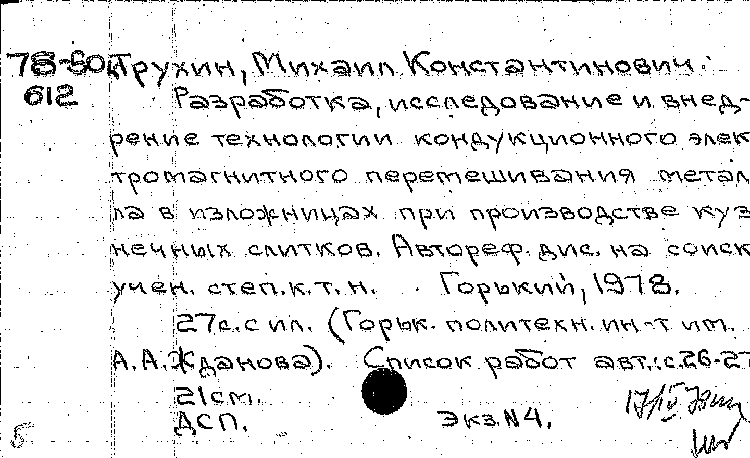 78-80к Трухин, Михаил Константинович.
612 Разработка, исследование и внед-
рение технологии кондукционного элек
тромагнитного перемешивания метал
ла в изложницах при производстве куз
нечных слитков. Автореф. дис. на соиск
учен. степ. к. т. н. Горький, 1978.
27с. с ил. (Горьк. политехн. ин-т им.
А. А. Жданова). Список работ авт.: с. 26-27
21см.
ДСП. Экз. N4.
Б